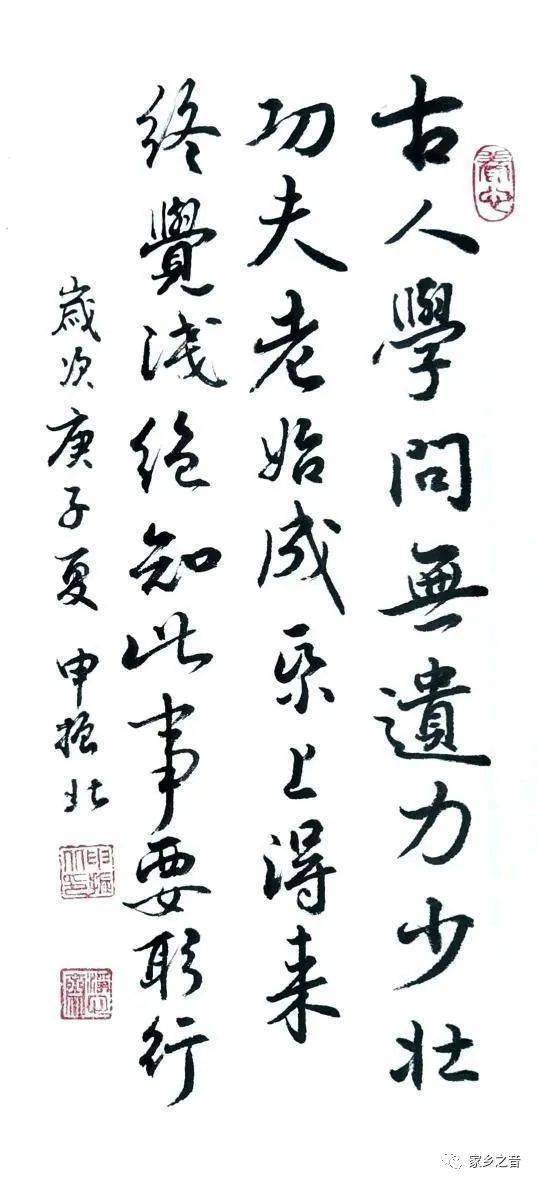 古人學問無遺力少壮
功夫老始成帋上得来
終覺浅絶知此事要躬行
歲次庚子夏 申振北
家乡之音